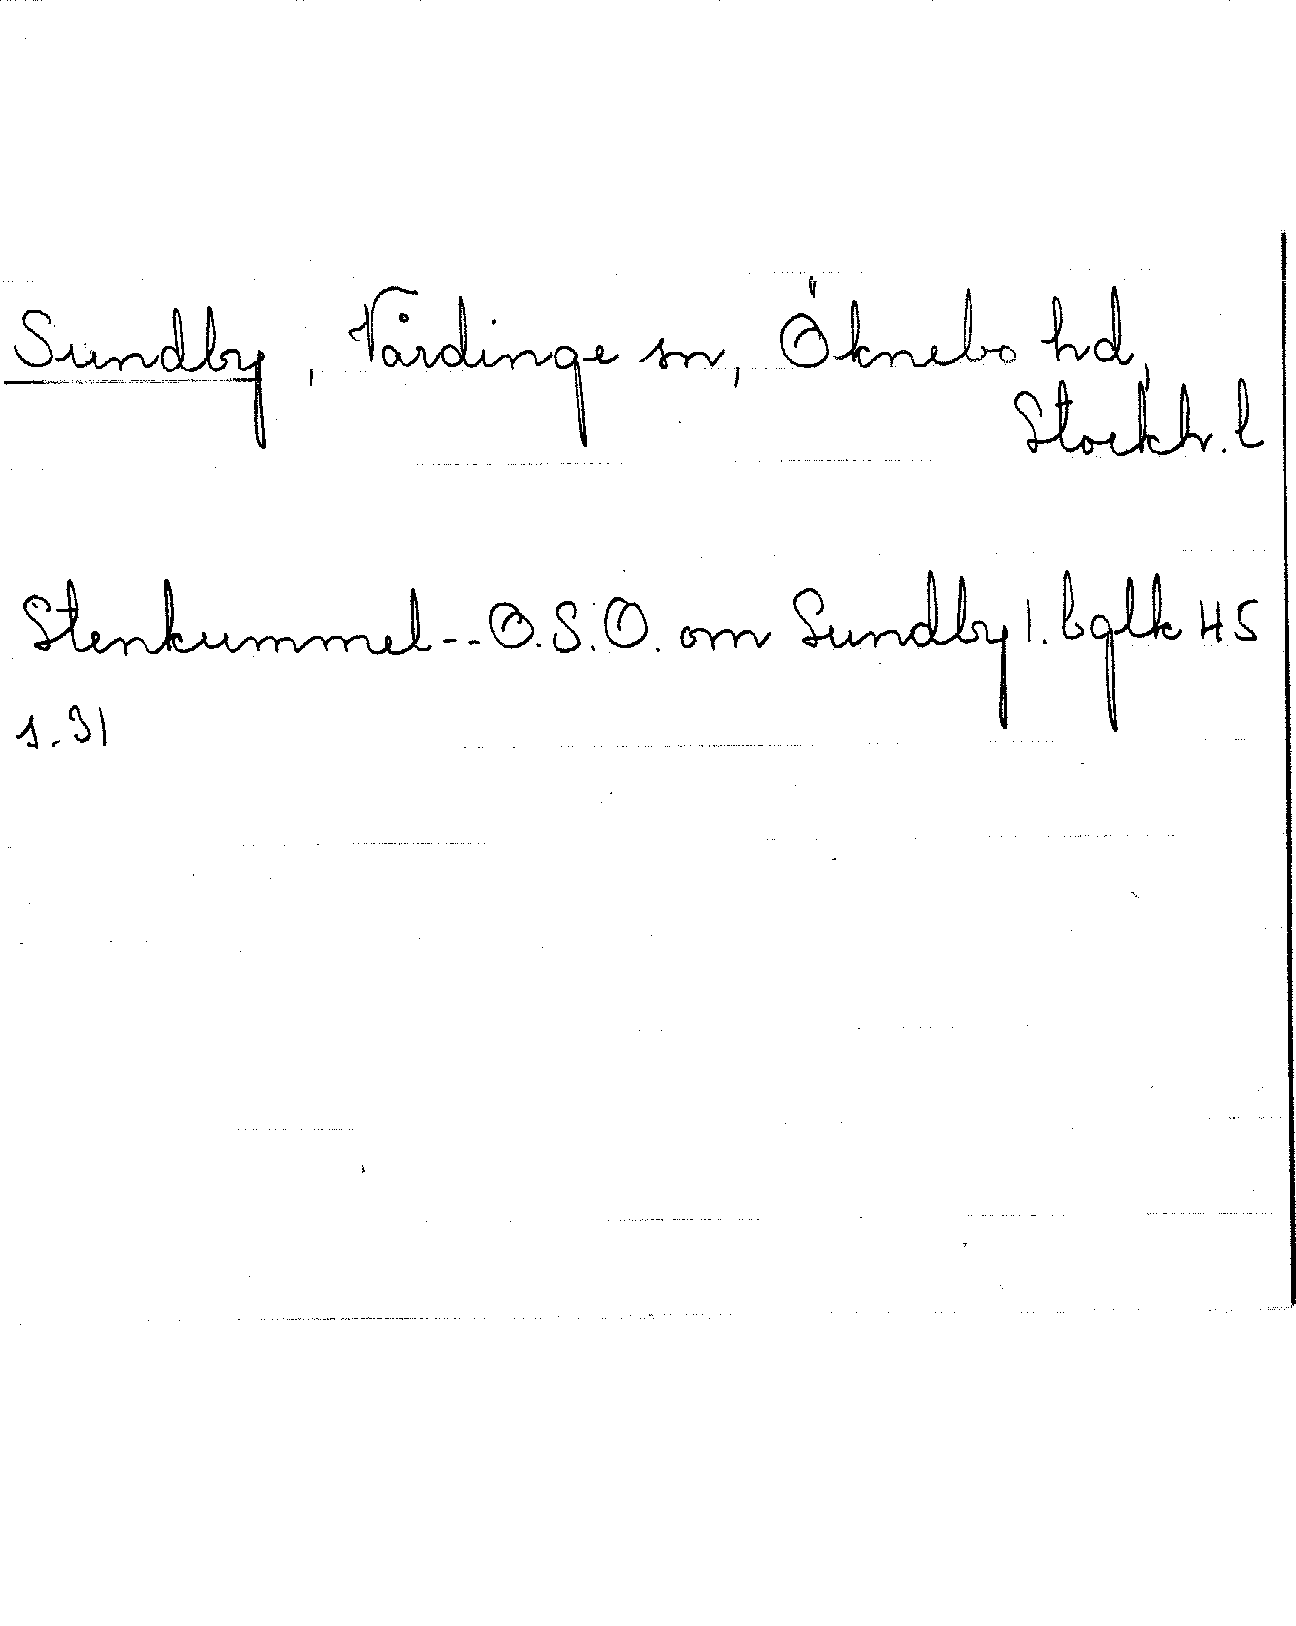 Sundby, Vårdinge sn, Öknebo hd,
Stockh. l
Stenkummel -- O.S.O. om Sundby l. bglk 45
s. 31